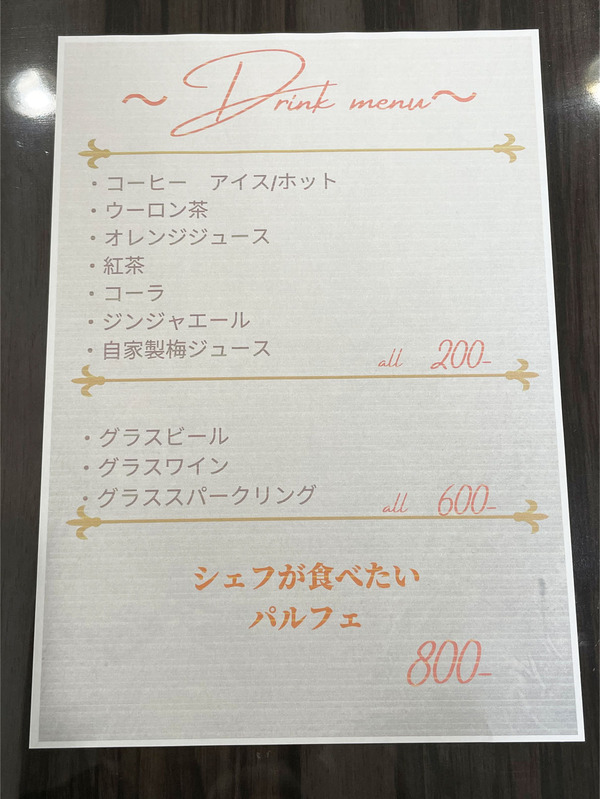 〜 Drink menu 〜
・コーヒー　アイス/ホット
・ウーロン茶
・オレンジジュース
・紅茶
・コーラ
・ジンジャエール
・自家製梅ジュース
all 200-
・グラスビール
・グラスワイン
・グラススパークリング
all 600-
シェフが食べたい
パルフェ
800-